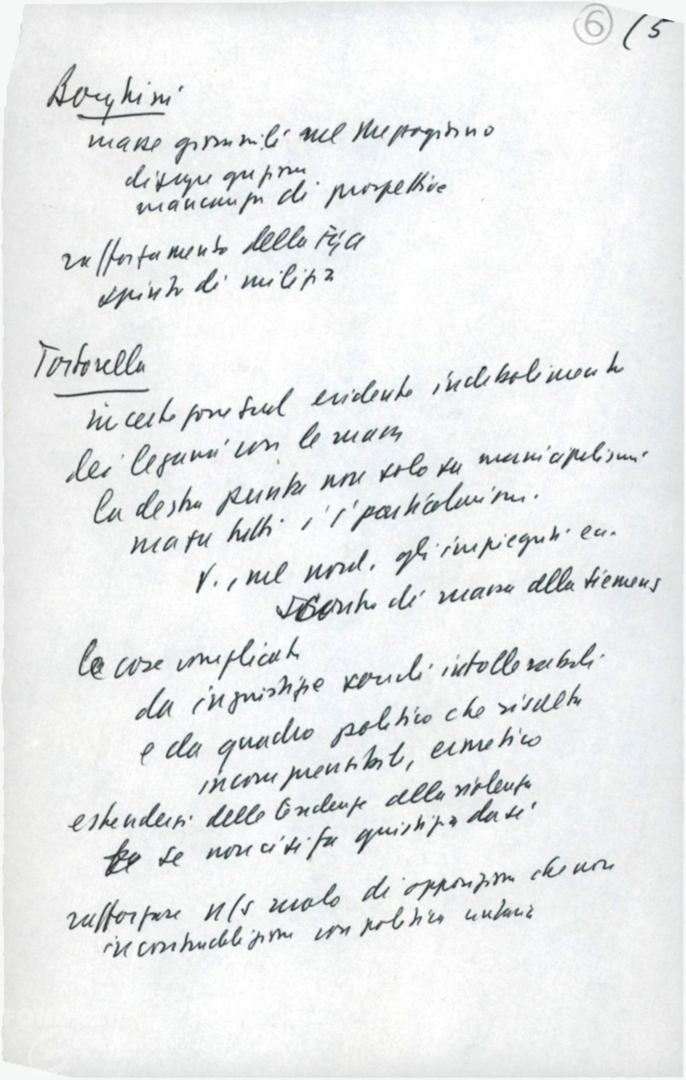 6 (5
Borghini
masse giovanili nel Mezzogiorno
disgregazione
mancanza di prospettive
rafforzamento della Fgci
spinta di milizia
Tortorella
in certe zone sud evidente indebolimento
dei legami con le masse
la destra punta non solo su municipalismi
ma su tutti i particolarismi.
V., nel nord, gli impiegati
di massa alla Siemens
le cose complicate
da ingiustizie sociali intollerabili
e da quadro politico che risulta
incomprensibile, ermetico
estendersi delle tendenze alla violenza
se non ci si fa giustizia da sé
rafforzare n/s ruolo di opposizione che non
in contraddizione con politica unitaria